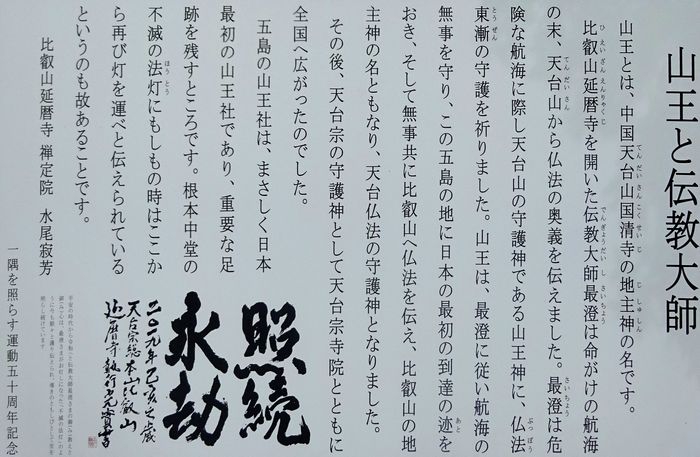 山王と伝教大師
山王とは、中国天台山国清寺の地主神の名です。
比叡山延暦寺を開いた伝教大師最澄は命がけの航海
の末、天台山から仏法の奥義を伝えました。最澄は危
険な航海に際し天台山の守護神である山王神に、仏法
東漸の守護を祈りました。山王は、最澄に従い航海の
無事を守り、この五島の地に日本の最初の到達の迹を
おき、そして無事共に比叡山へ仏法を伝え、比叡山の地
主神の名ともなり、天台仏法の守護神となりました。
その後、天台宗の守護神として天台宗寺院とともに
全国へ広がったのでした。
五島の山王社は、まさしく日本
最初の山王社であり、重要な足
跡を残すところです。根本中堂の
不滅の法灯にもしもの時はここか
ら再び灯を運べと伝えられている
というのも故あることです。
比叡山延暦寺 禅定院 水尾寂芳
照続
永劫
二〇一九年己亥之歳
天台宗総本山比叡山
延暦寺執行
一隅を照らす運動五十周年記念